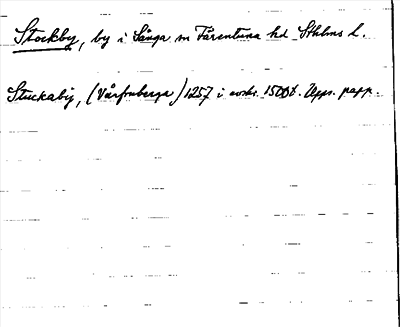 Stockby, by i Sånga sn Färentuna hd Sthlms l.
Stuckabij, (Vårfruberga) 1257 i avskr. 1500t. Upps. papp.